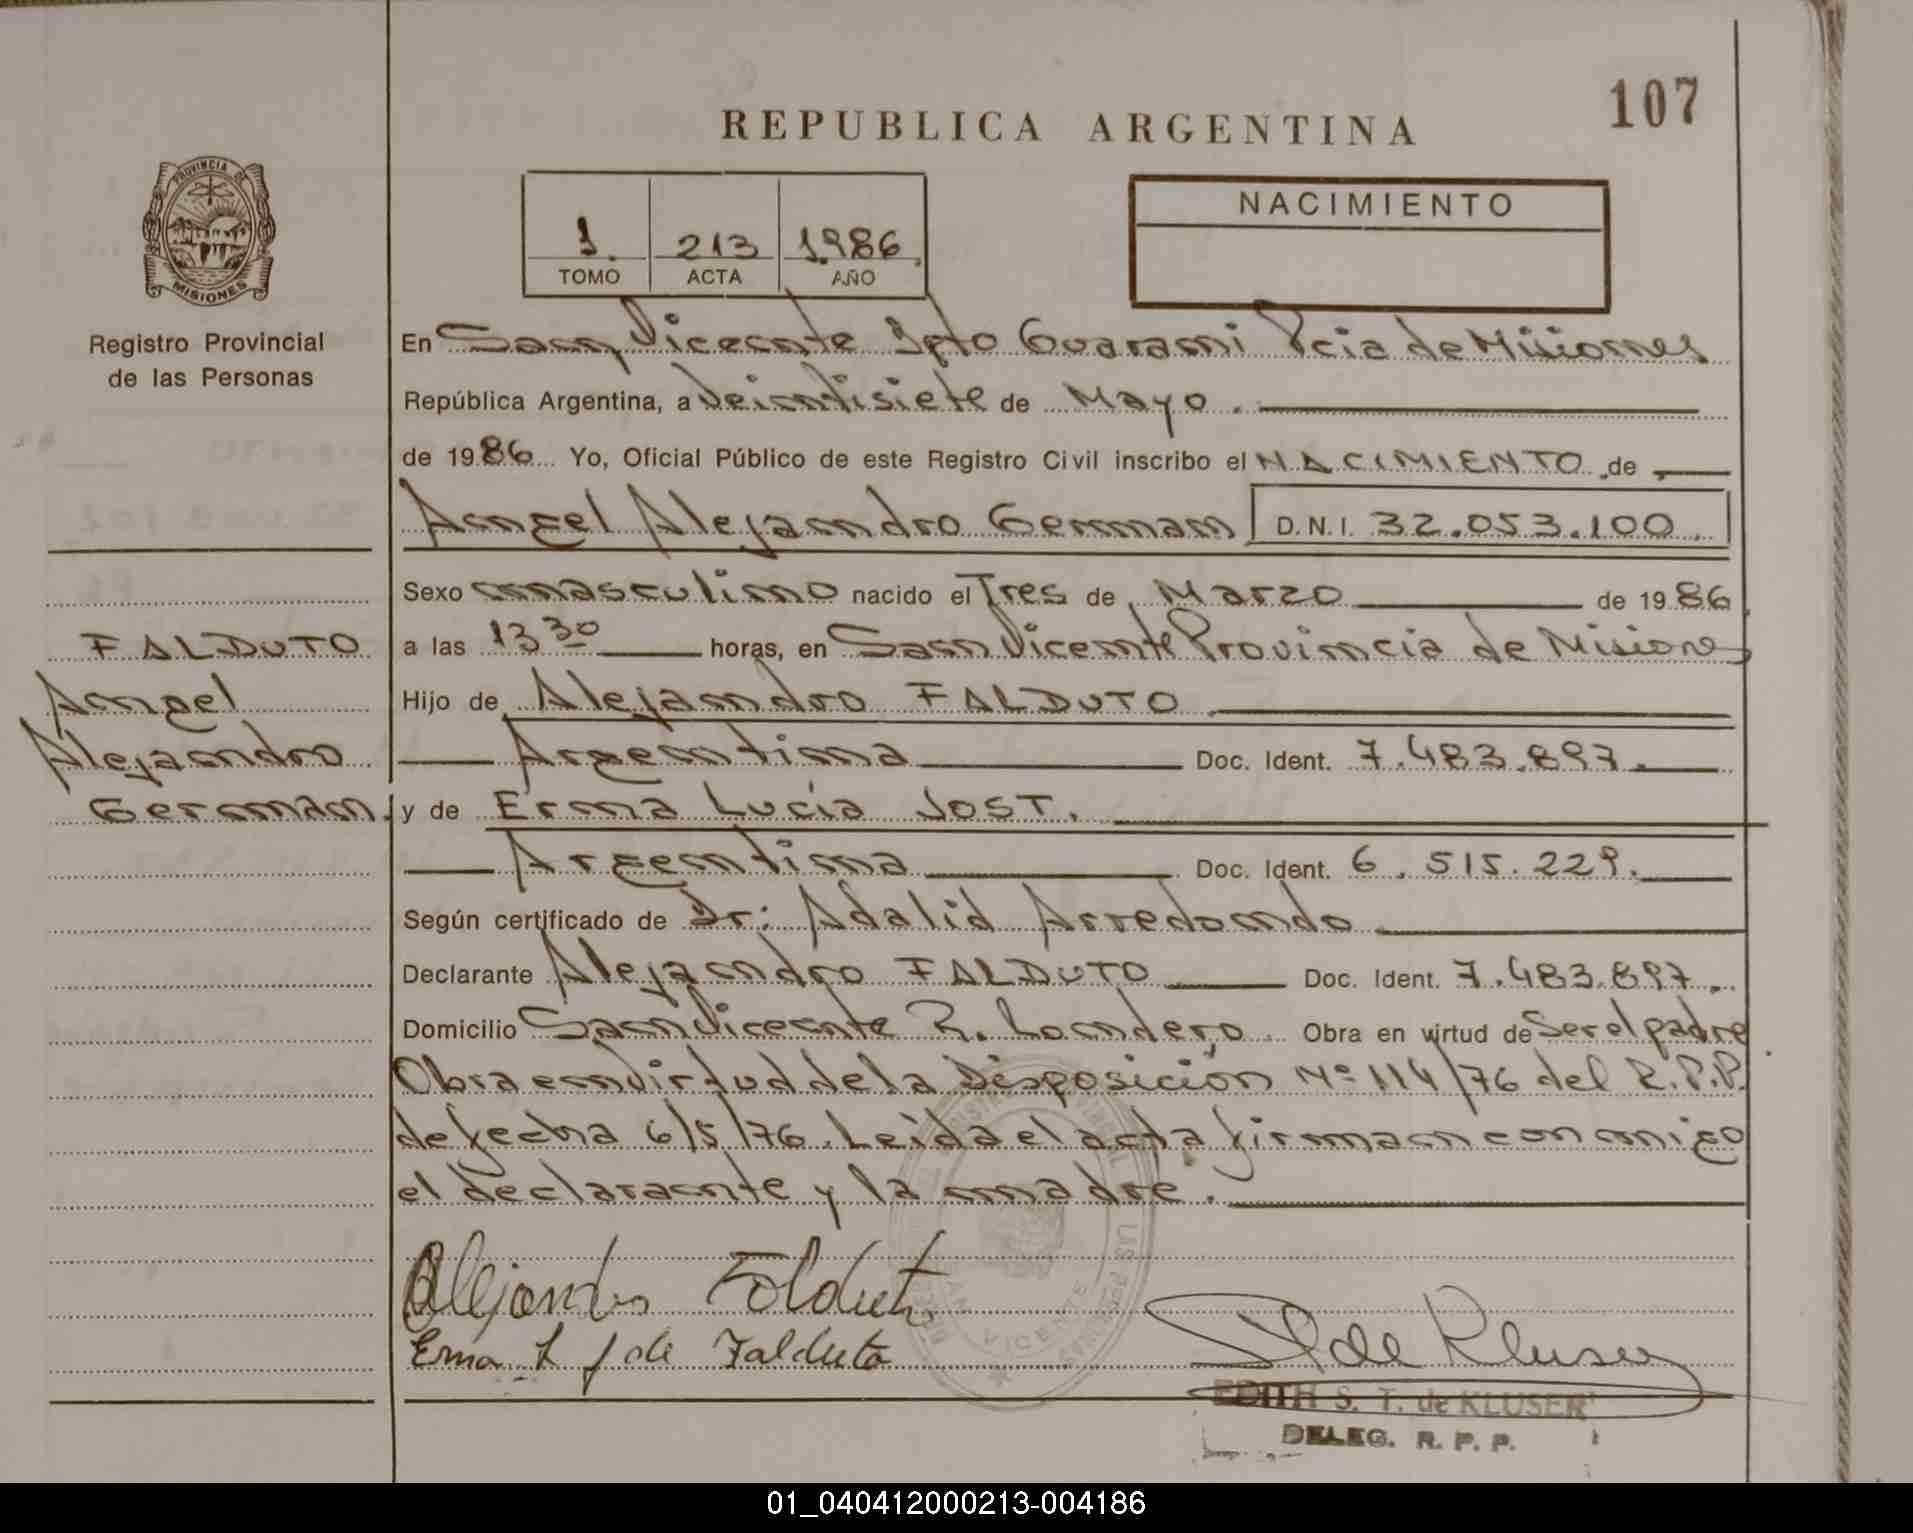 107
REPUBLICA ARGENTINA
PROVINCIA DE
MISIONES
Registro Provincial
de las Personas
1. 213 1.986.
TOMO ACTA AÑO
NACIMIENTO
En San Vicecnte Dpto Guarami Pcia de Misiones
República Argentina, a Veintisiete de Mayo.
de 1986 Yo, Oficial Público de este Registro Civil inscribo el NACIMIENTO de
Angel Alejandro German D.N.I. 32.053.100
Sexo masculino nacido el Tres de Marzo de 1986
a las 13 30 horas, en San Vicente Provincia de Misiones
Hijo de Alejandro FALDUTO
Argentina Doc. Ident. 7.483.897.
y de Erma Lucía JOST.
Argentina Doc. Ident. 6.515.229.
Según certificado de Dr: Adalid Arredondo
Declarante Alejandro FALDUTO Doc. Ident. 7.483.897.
Domicilio San Vicecnte R. Londero Obra en virtud de Ser el padre
Obra en virtud de la Disposición Nº 114/76 del R.P.P.
de fecha 6/5/76. Leída el acta firman conmigo
el declarante y la madre.
FALDUTO
Angel
Alejandro
German.
Alejandro Falduto
Erma L J de Falduto
de Kluser
EDITH S. T. de KLUSER
DELEG. R. P. P.
SAN VICENTE
LAS PERSONAS
01_040412000213-004186